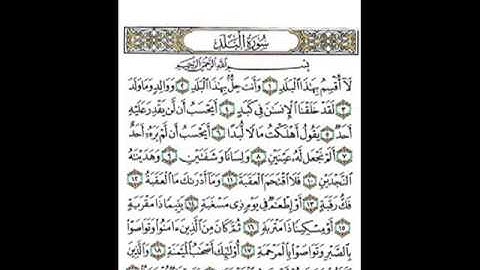 سُورَةُ الْبَلَدِ
بِسْمِ اللَّهِ الرَّحْمَٰنِ الرَّحِيمِ
لَآ أُقْسِمُ بِهَٰذَا الْبَلَدِ ١ وَأَنتَ حِلٌّۢ بِهَٰذَا الْبَلَدِ ٢ وَوَالِدٍ وَمَا وَلَدَ
٣ لَقَدْ خَلَقْنَا الْإِنسَٰنَ فِي كَبَدٍ ٤ أَيَحْسَبُ أَن لَّن يَقْدِرَ عَلَيْهِ
أَحَدٌ ٥ يَقُولُ أَهْلَكْتُ مَالًا لُّبَدًا ٦ أَيَحْسَبُ أَن لَّمْ يَرَهُۥٓ أَحَدٌ
٧ أَلَمْ نَجْعَل لَّهُۥ عَيْنَيْنِ ٨ وَلِسَانًا وَشَفَتَيْنِ ٩ وَهَدَيْنَٰهُ
النَّجْدَيْنِ ١٠ فَلَا اقْتَحَمَ الْعَقَبَةَ ١١ وَمَآ أَدْرَىٰكَ مَا الْعَقَبَةُ ١٢
فَكُّ رَقَبَةٍ ١٣ أَوْ إِطْعَٰمٌ فِي يَوْمٍ ذِي مَسْغَبَةٍ ١٤ يَتِيمًا ذَا مَقْرَبَةٍ
١٥ أَوْ مِسْكِينًا ذَا مَتْرَبَةٍ ١٦ ثُمَّ كَانَ مِنَ الَّذِينَ ءَامَنُوا وَتَوَاصَوْا
بِالصَّبْرِ وَتَوَاصَوْا بِالْمَرْحَمَةِ ١٧ أُولَٰٓئِكَ أَصْحَٰبُ الْمَيْمَنَةِ ١٨ وَالَّذِينَ